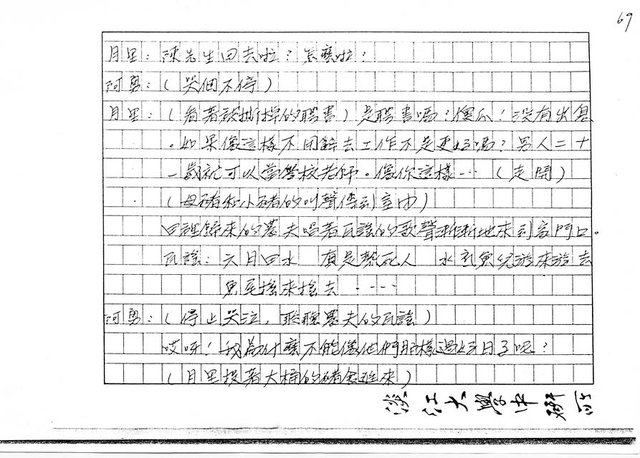 69
月里：陳先生回去啦？怎麼啦？
阿勇：（哭個不停）
月里：（看著被撕掉的聘書）是聘書嗎？傻瓜！沒有出息
。如果像這樣不用辭去工作不是更好嗎？男人二十
歲就可以當學校老師。像你這樣…（走開）
（母豬和小豬的叫聲傳到室內）
回來的農夫唱著民謠的歌聲漸漸地來到家門口。
民謠：六月田水 真是熱死人 水裡魚兒游來游去
魚尾搖來搖去 ‥‥
阿勇：（停止哭泣，聽聽農夫的民謠）
哎呀！我為什麼不能像他們那樣過好日子呢？
（月里提著大桶的豬食進來）
淡江大學中研所